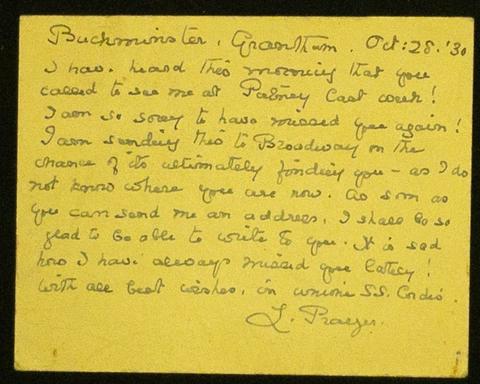 Buckminster, Grantham. Oct: 28. '30
I have heard this morning that you
called to see me at Putney last week!
I am so sorry to have missed you again!
I am sending this to Broadway on the
chance of its ultimately finding you – as I do
not know where you are now. As soon as
you can send me an address, I shall be so
glad to be able to write to you. It is sad
how I have always missed you lately!
With all best wishes, in unione SS. Cordis.
L.